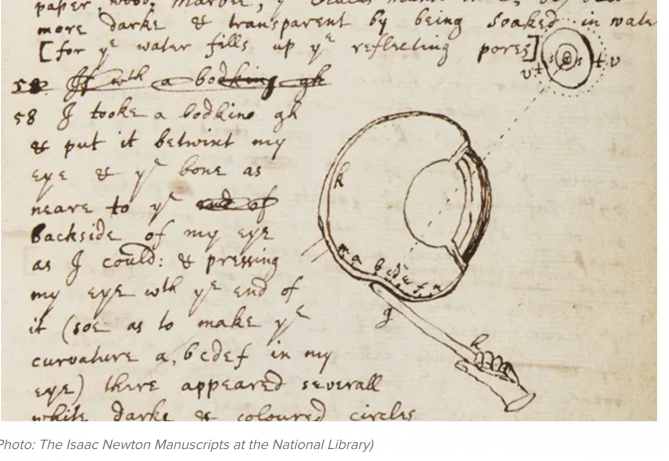 paper, wood, marble, ye
more darke & transparent by being soaked in wate
[for ye water fills up ye reflecting pores]
58 If wth a bodkine gh
58 I tooke a bodkine gh
& put it betwixt my
eye & ye bone as
neare to ye end of
backside of my eye
as I could: & pressing
my eye wth ye end of
it (soe as to make ye
curvature a, bcdef in my
eye) there appeared severall
white darke & coloured circles
k
g
h
Photo: The Isaac Newton Manuscripts at the National Library)